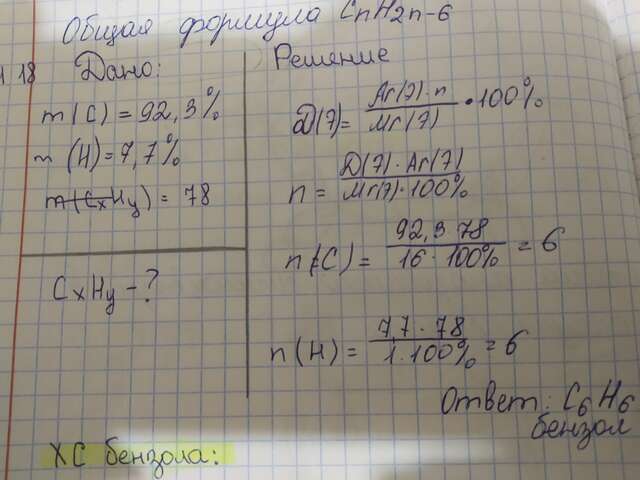 Общая формула CnH2n-6
1 18 Дано:
m(C) = 92,3%
m(H) = 7,7%
m(CxHy) = 78
CxHy - ?
Решение
D(э) = Ar(э)·n / Mr(э) · 100%
n = D(э)·Ar(э) / Mr(э)·100%
n(C) = 92,3·78 / 16·100% = 6
n(H) = 7,7·78 / 1·100% = 6
Ответ: C6H6
бензол
ХС бензола: